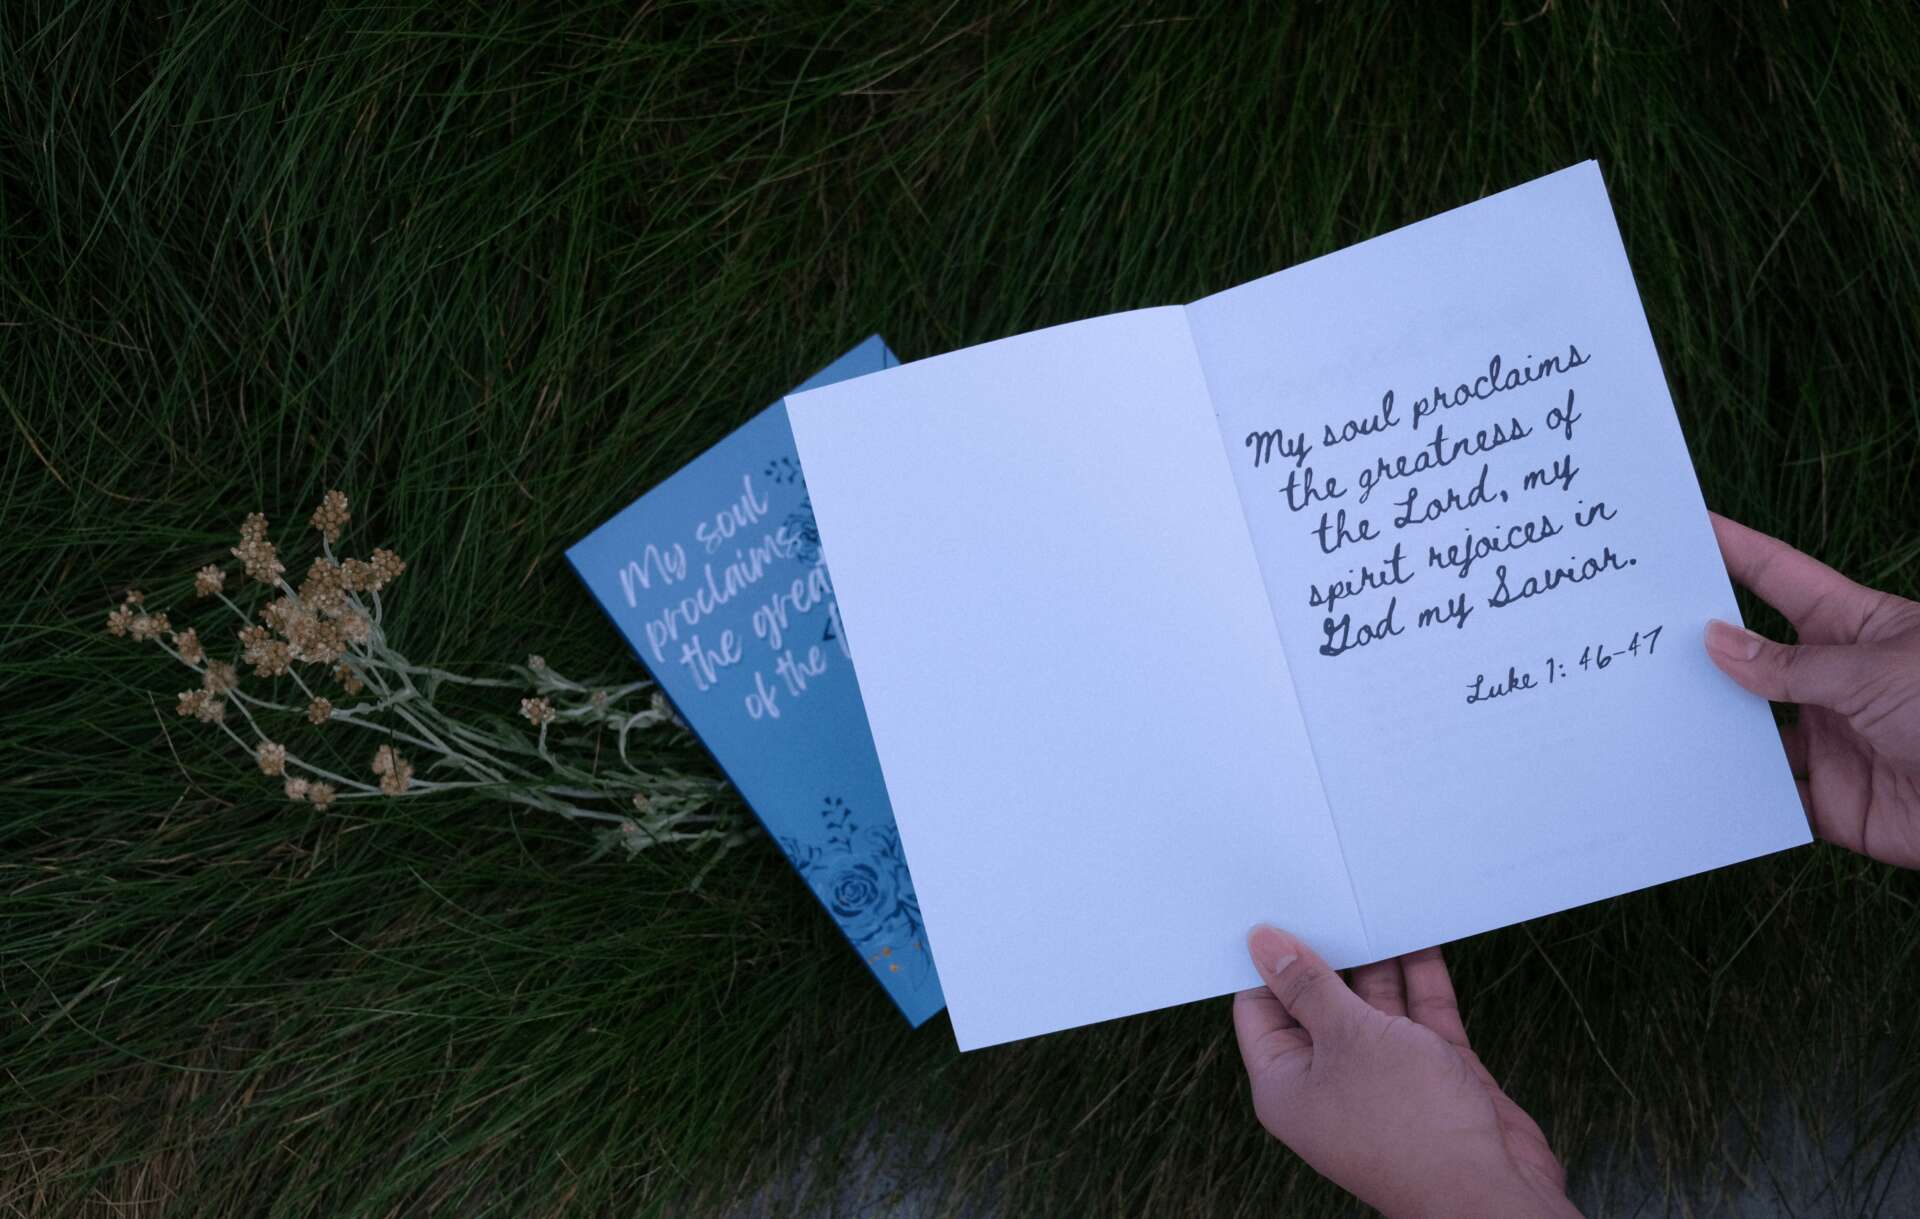 My soul
proclaims
the great
of the
My soul proclaims
the greatness of
the Lord, my
spirit rejoices in
God my Savior.
Luke 1: 46-47